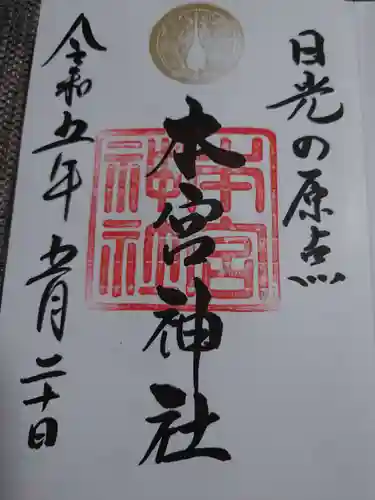 日光の原点
本宮神社
本宮神社
令和五年五月二十日